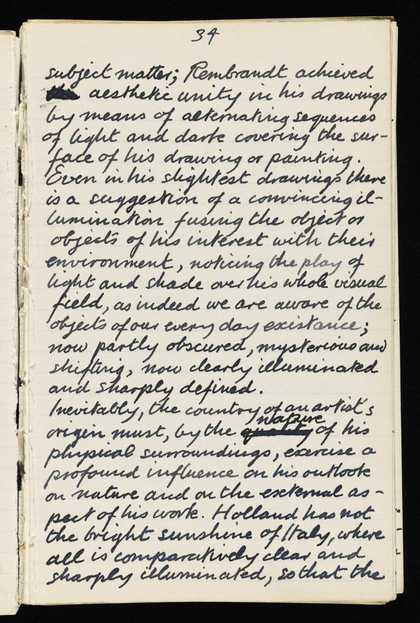 34
subject matter; Rembrandt achieved
aesthetic unity in his drawings
by means of alternating sequences
of light and dark covering the sur-
face of his drawing or painting.
Even in his slightest drawings there
is a suggestion of a convincing il-
lumination fusing the object or
objects of his interest with their
environment, noticing the play of
light and shade over his whole visual
field, as indeed we are aware of the
objects of our every day existance;
now partly obscured, mysterious and
shifting, now clearly illuminated
and sharply defined.
Inevitably, the country of an artist's
origin must, by the nature of his
physical surroundings, exercise a
profound influence on his outlook
on nature and on the external as-
pect of his work. Holland has not
the bright sunshine of Italy, where
all is comparatively clear and
sharply illuminated, so that the